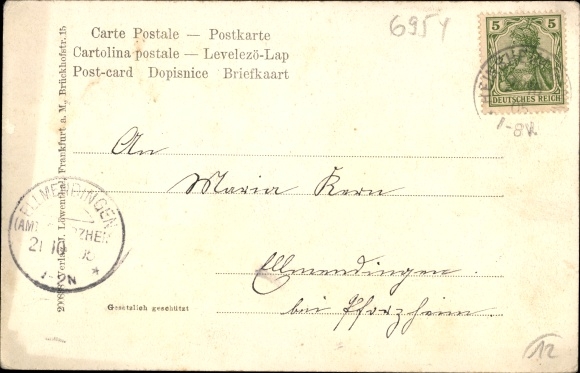 6954
Carte Postale — Postkarte
Cartolina postale — Levelező-Lap
Post-card Dopisnice Briefkaart
5 5
DEUTSCHES REICH
1-8V.
An
Maria Kern
Ellmendingen.
bei Pforzheim.
ELLMENDINGEN
(AMT PFORZHEIM
21 10
1-2N *
Verlag J. Löwenthal, Frankfurt a. M., Brückhofstr. 15
Gesetzlich geschützt
12